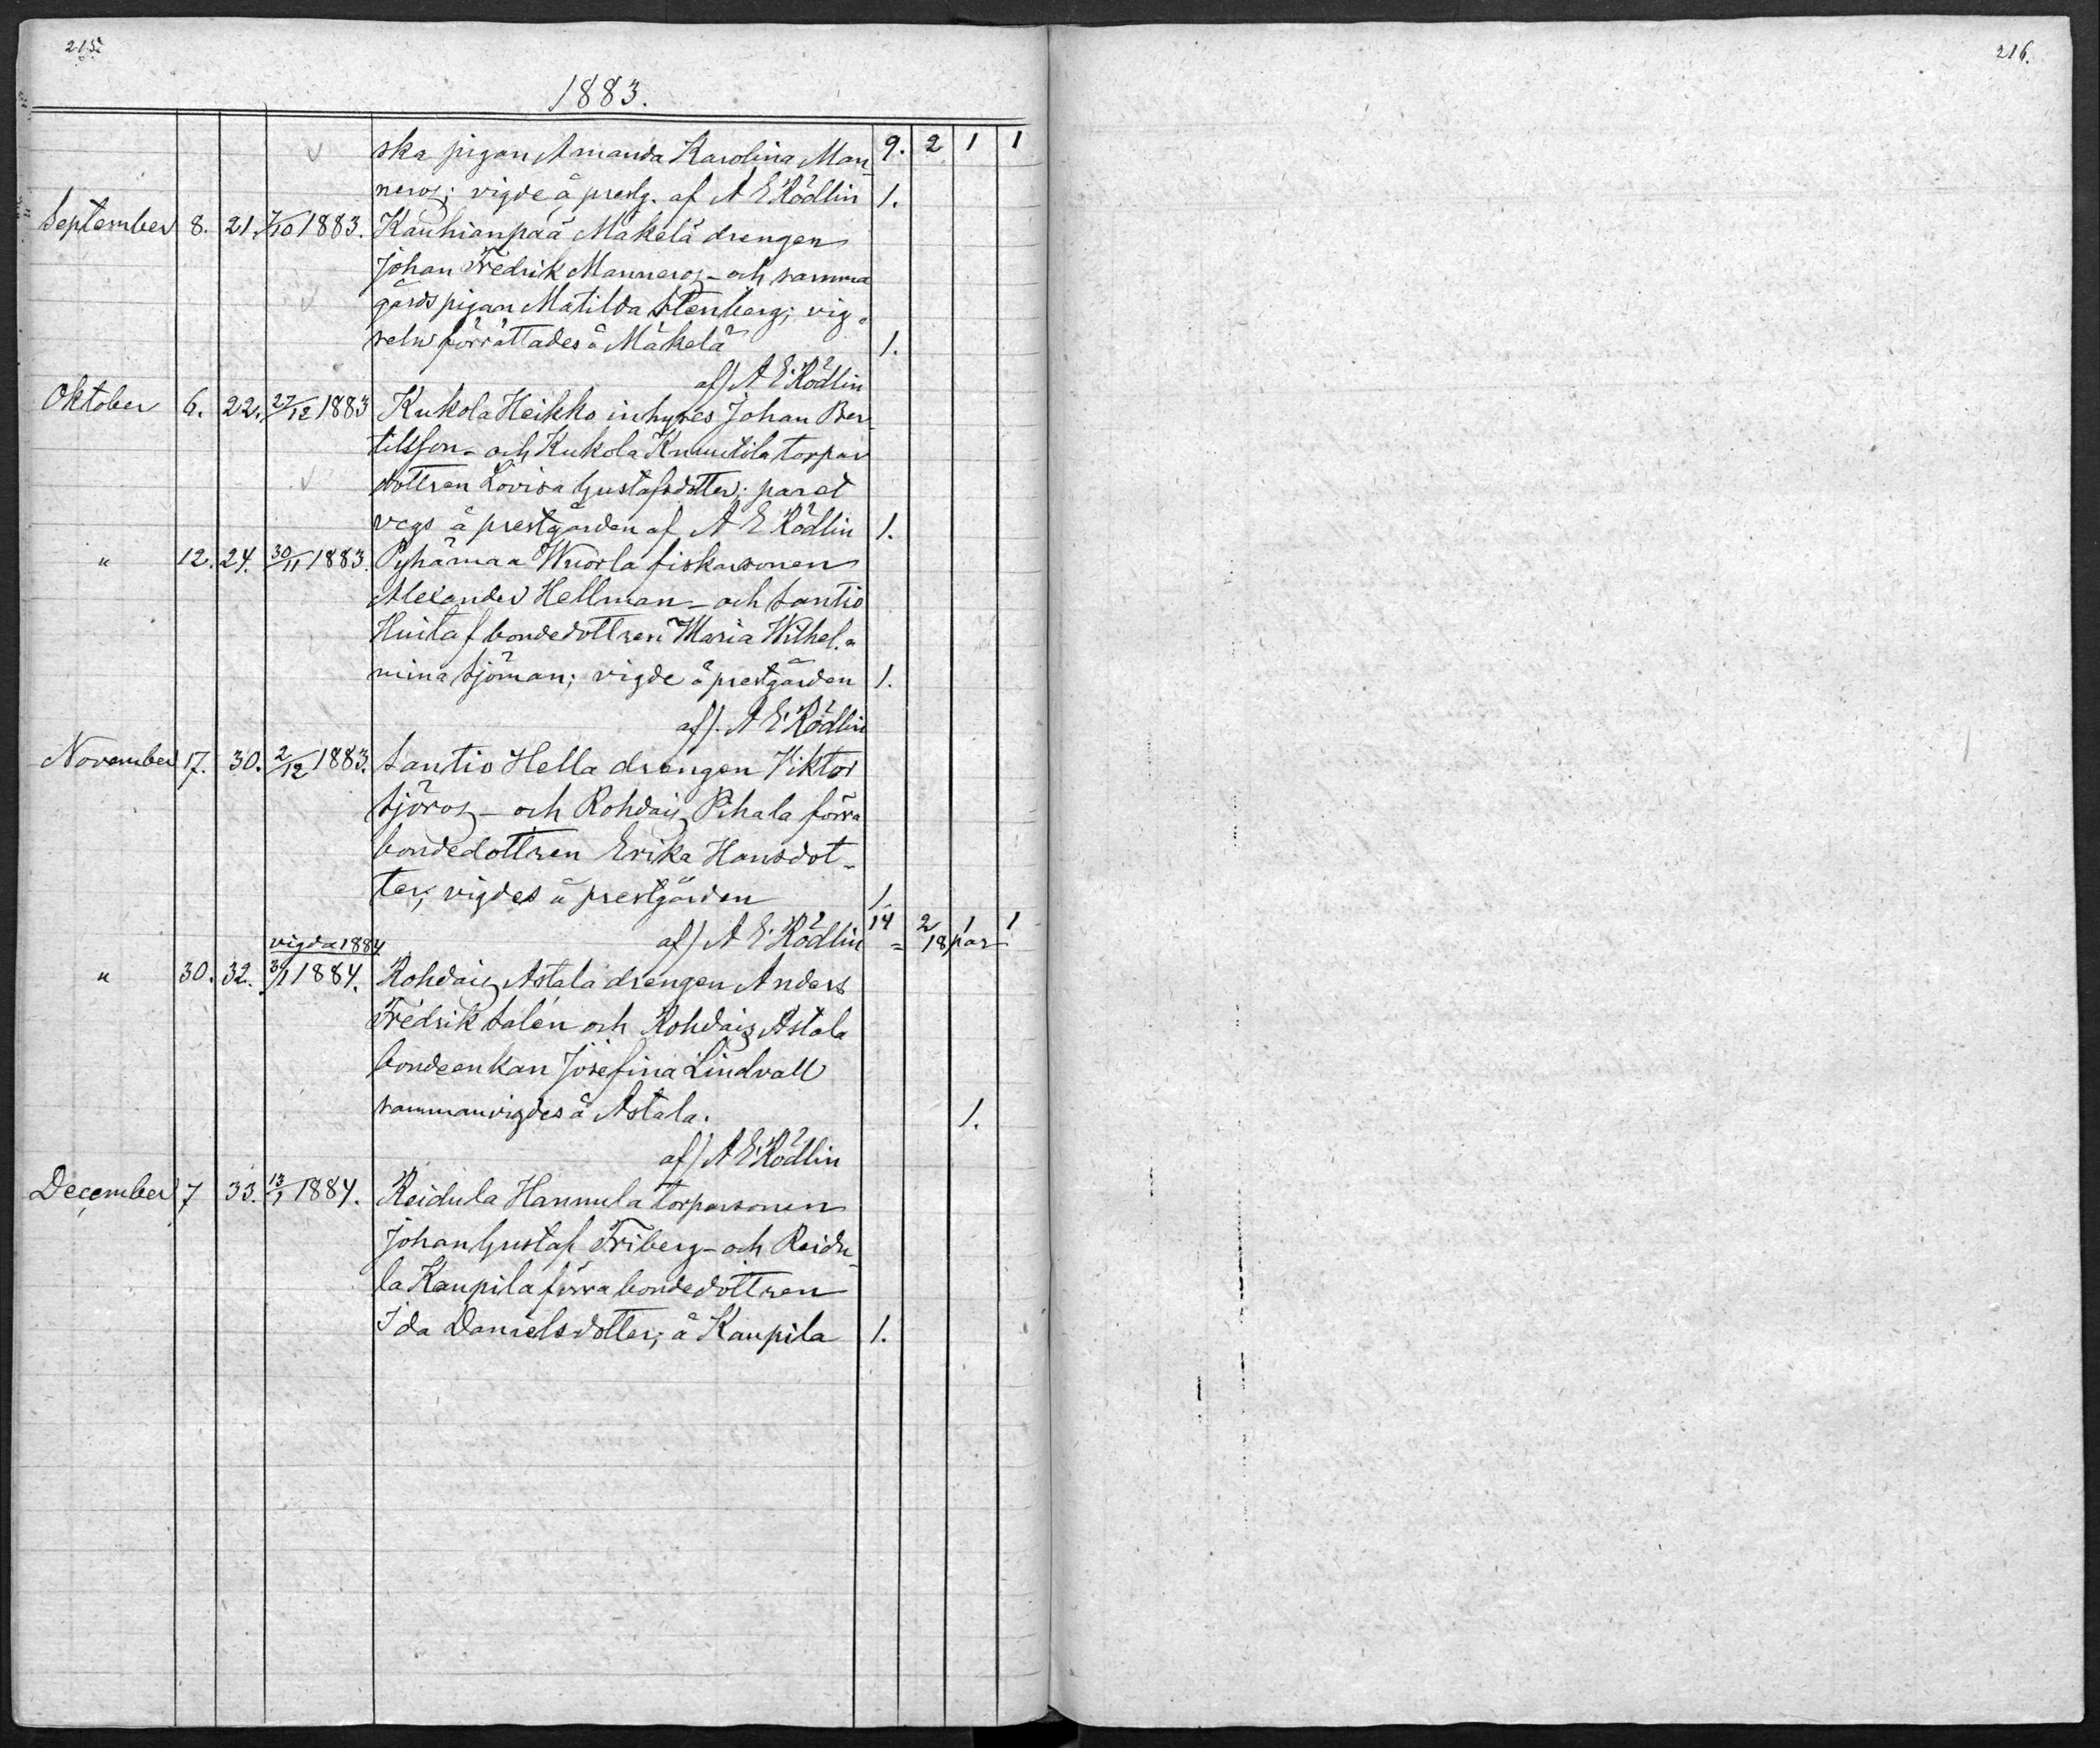 215
216.
1883.
ska pigan Amanda Karolina Man- 9. 2 1 1
neros; vigde å prestg. af A E Rödlin 1.
September 8. 21. 7/10 1883. Kauhianpää Mäkelä drengen
Johan Fredrik Manneros - och samma
gårds pigan Matilda Stenberg; vig-
seln förrättades å Mäkelä 1.
af) A E Rödlin
Oktober 6. 22. 27/12 1883 Kukola Heikko inhyses Johan Ber-
tilsson - och Kukola Knuutila torpar
dottren Lovisa Gustafsdotter; paret
vegs å prestgården af A E Rödlin 1.
" 12. 24. 30/11 1883. Pyhämaa Wuorla fiskaresonen
Alexander Hellman - och Santio
Huitaf bondedottren Maria Wilhel-
mina Sjöman; vigde å prestgården 1.
af). A E Rödlin
November 17. 30. 2/12 1883. Santio Hella drengen Viktor
Sjöros - och Rohdais Pihala förra
bondedottren Erika Hansdot-
ter; vigdes å prestgården 1.
af) A E Rödlin 14 2 1 1
vigda 1884 = 18 par
" 30. 32. 3/1 1884. Rohdais Astala drengen Anders
Fredrik Salén och Rohdais Astala
bondeenkan Josefina Lindvall
sammanvigdes å Astala. 1.
af) A E Rödlin
December 7 33. 13/1 1884. Reidula Hannula torparsonen
Johan Gustaf Friberg - och Reidu-
la Kaupila förra bondedottren
Ida Danielsdotter; å Kaupila 1.